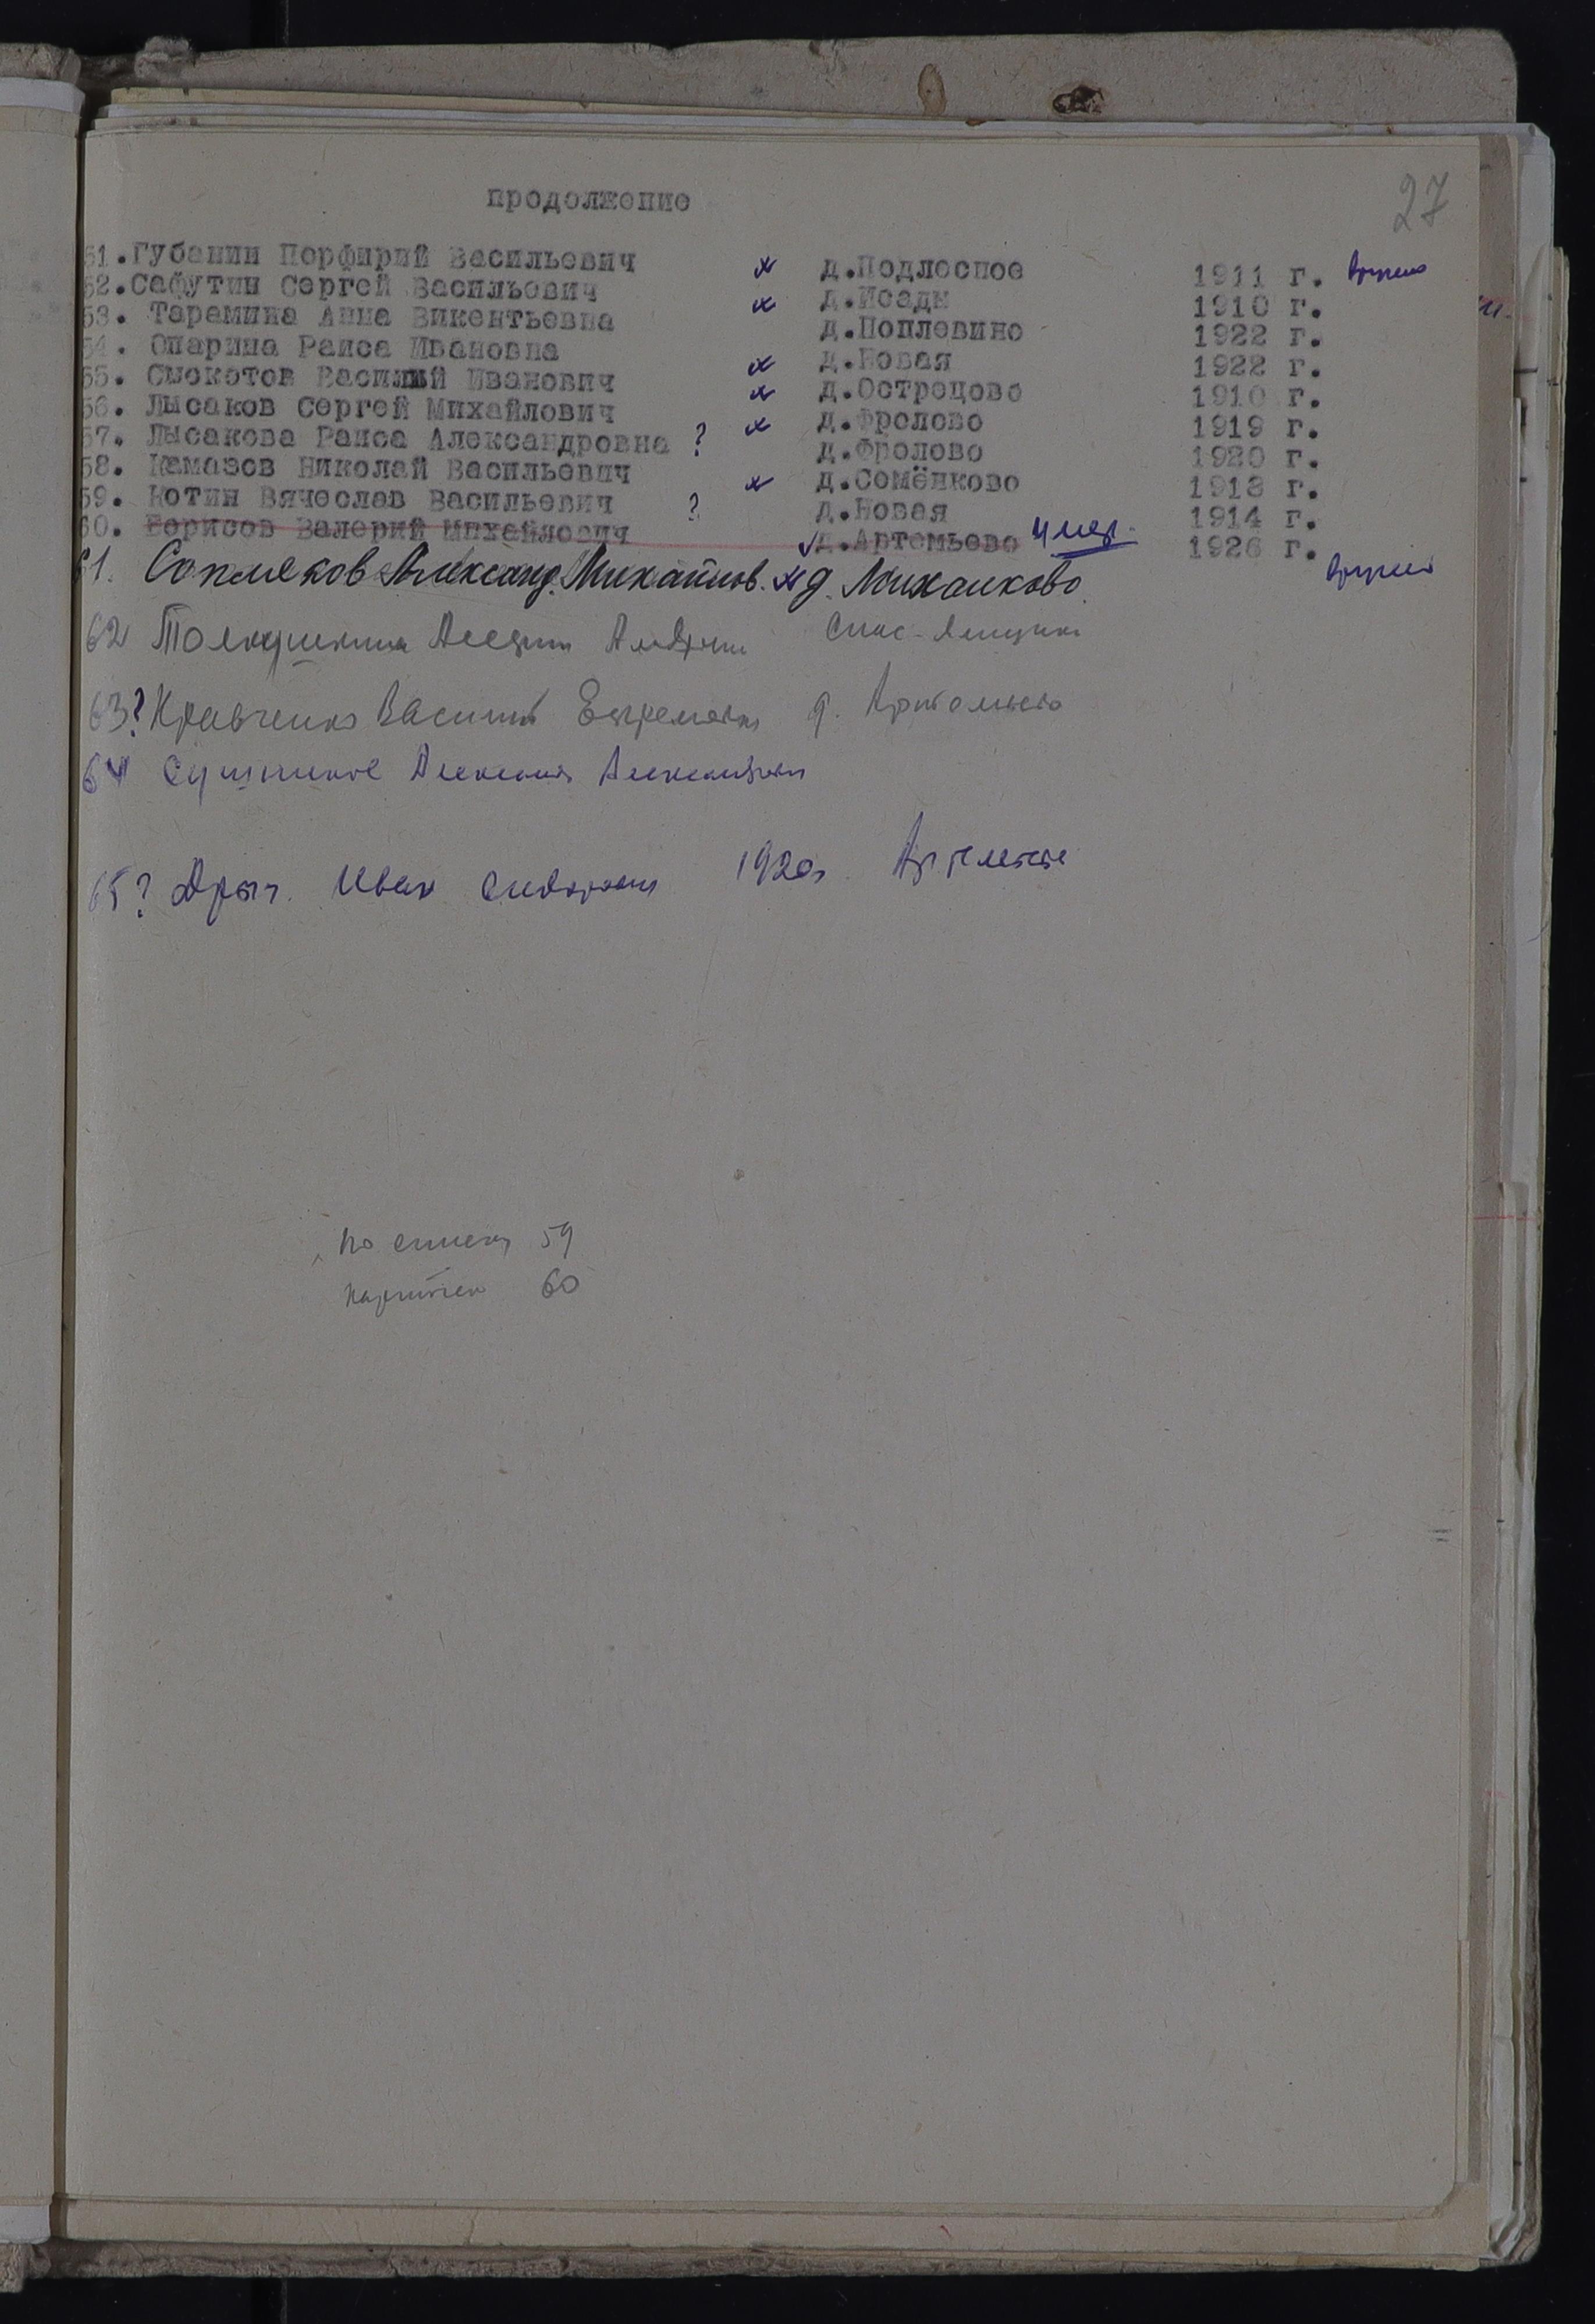 27
продолжение
51. Губанин Порфирий Васильевич х д.Подлесное 1911 г. Вручено
52. Сафутин Сергей Васильевич х д.Исады 1910 г.
53. Тарамина Анна Викентьевна д.Поплевино 1922 г.
54. Опарина Раиса Ивановна х д.Новая 1922 г.
55. Сыскотов Василий Иванович х д.Острецово 1910 г.
56. Лысаков Сергей Михайлович х д.Фролово 1919 г.
57. Лысакова Раиса Александровна ? д.Фролово 1920 г.
58. Камазов Николай Васильевич х д.Семёнково 1918 г.
59. Котин Вячеслав Васильевич ? д.Новая 1914 г.
60. Борисов Валерий Михайлович д.Артемьево умер. 1926 г.
61. Сопляков Александ. Михайлов. х д. Михалково Вручено
62 Толкушкина
63? Кравченко Василий Ефремович д. Артемьево
64 Сушников Алексей Александрович
65? Дрыг. Иван Сидорович 1920г. Артемьево
По списку 59
карточек 60